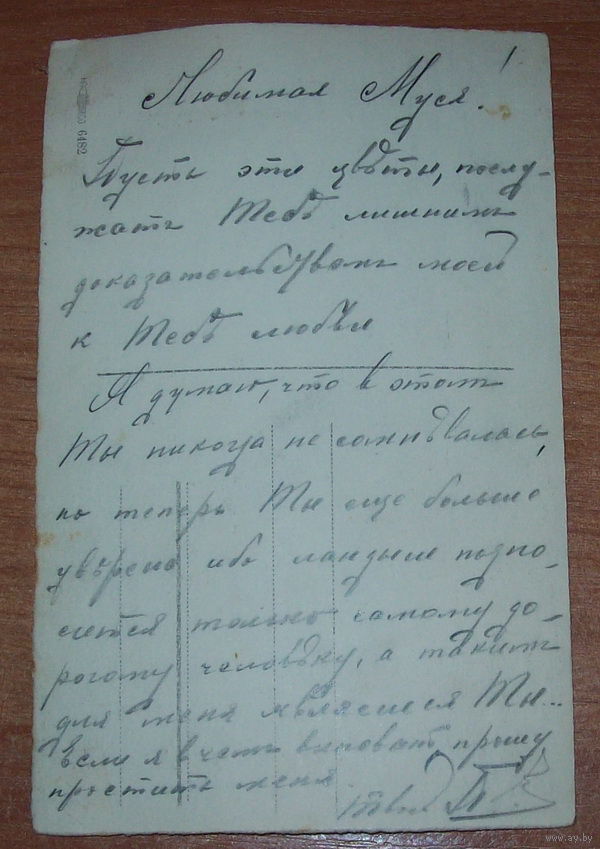 Любимая Муся!
Пусть эти цвѣты, послу-
жатъ Тебѣ лишнимъ
доказательствомъ моей
къ Тебѣ любви
Я думаю, что в этомъ
Ты никогда не сомнѣвалась,
но теперь Ты еще больше
увѣрена ибо ландыши подно-
сятся только самому до-
рогому человѣку, а такимъ
для меня являешься Ты..
Если я в чемъ виноватъ прошу
простить меня
Твой
6482
www.ay.by